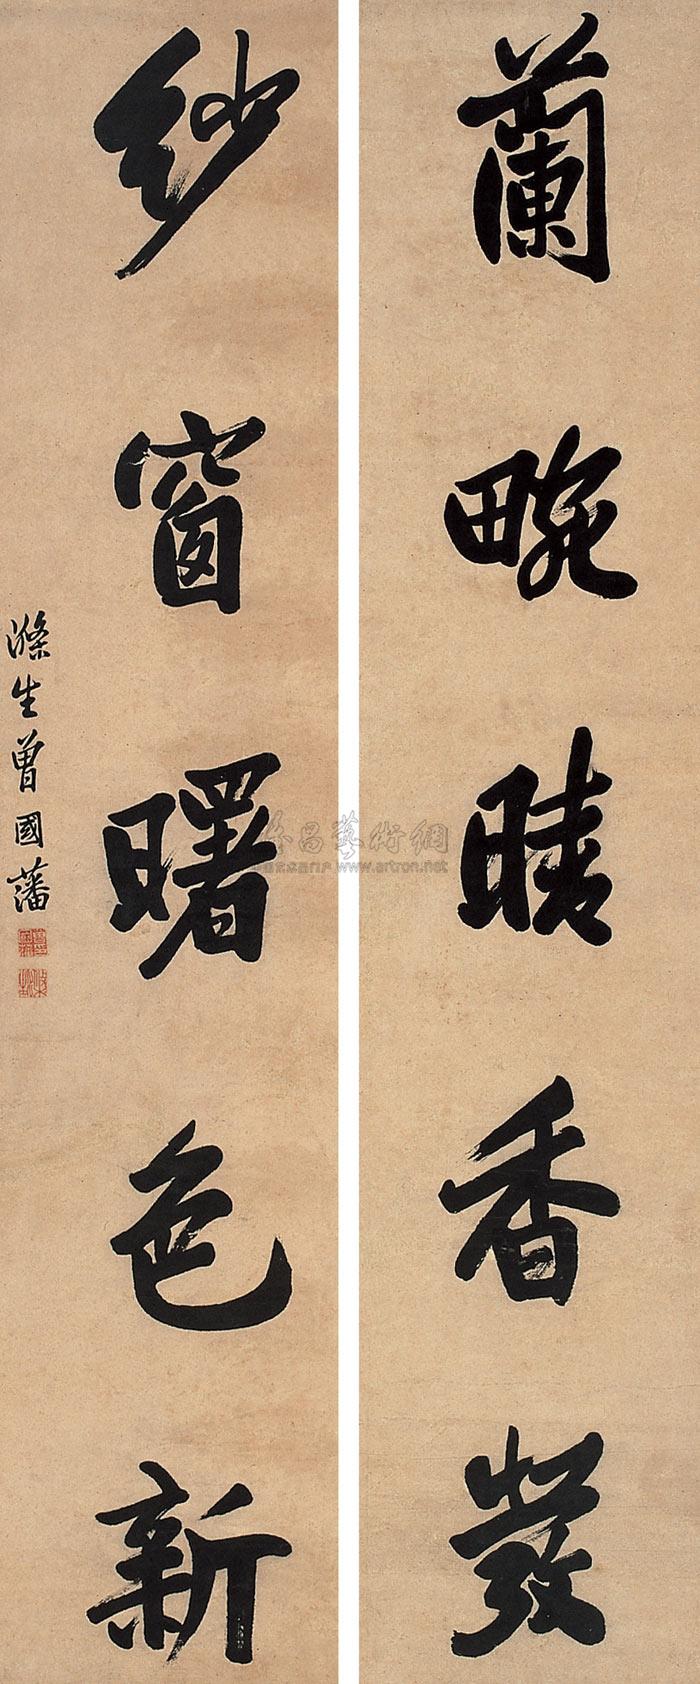 蘭畹晴香發
紗窗曙色新
滌生曾國藩
雅昌藝術網
www.artron.net